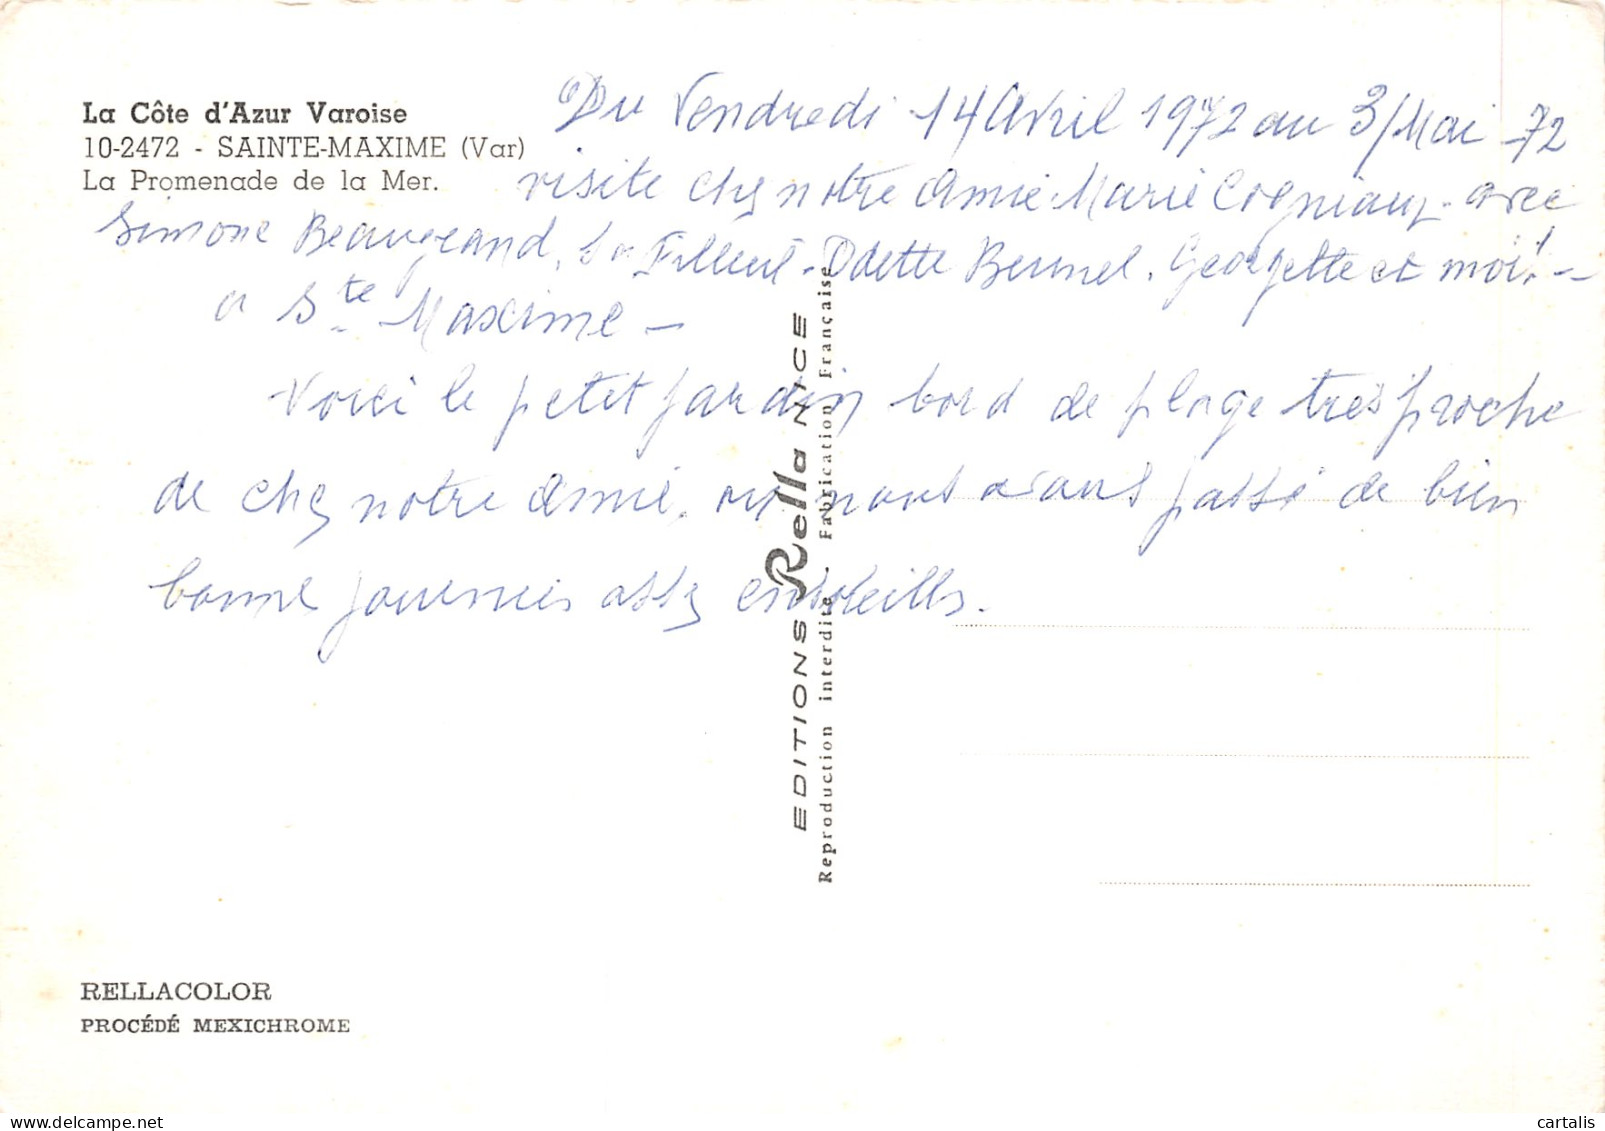 La Côte d'Azur Varoise
10-2472 - SAINTE-MAXIME (Var)
La Promenade de la Mer.
Du Vendredi 14 Avril 1972 au 3/Mai -72
visite chez notre amie Marie Cogniaux - avec
Simone Beaugeand, sa Filleul - Odette Bermel. Georgette et moi! -
a Ste Maxime -
Voici le petit jardin bord de plage très proche
de chez notre amie, où nous avons passé de bien
bonne journées assez ensoleillés.
EDITIONS Rella NICE
Reproduction interdite - Fabrication Française
RELLACOLOR
PROCÉDÉ MEXICHROME
cartalis